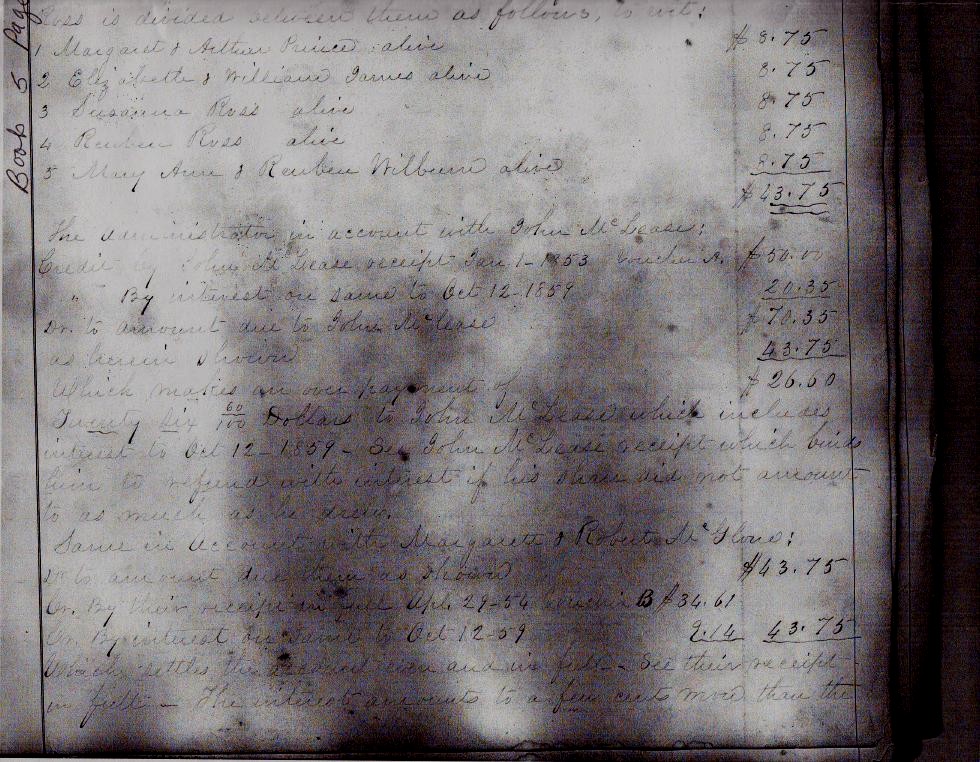 Book 5 Page
Ross is divided between them as follows, to wit:
1 Margaret & Arthur Prince alive $8.75
2 Elizabeth & William James alive 8.75
3 Susanna Ross alive 8.75
4 Reuben Ross alive 8.75
5 Mary Ann & Reuben Wilburn alive 8.75
$43.75
The administrator in account with John McLease:
Credit by John McLease receipt Jan. 1-1853 voucher A. $50.00
" By interest on same to Oct 12-1859 20.35
Dr. to amount due to John McLease $70.35
as herein shown 43.75
Which makes an over payment of $26.60
Twenty six 60/100 Dollars to John McLease which includes
interest to Oct 12-1859 - See John McLease receipt which binds
him to refund with interest if his share did not amount
to as much as he drew.
Same in account with Margarett & Robert McGlone:
Dr to amount due them as shown $43.75
Cr. By their receipt in full Apl. 29-54 voucher B $34.61
Cr. By interest on same to Oct 12-59 9.14 43.75
Which settles the account even and in full - See their receipt
in full - The interest amounts to a few cents more than the